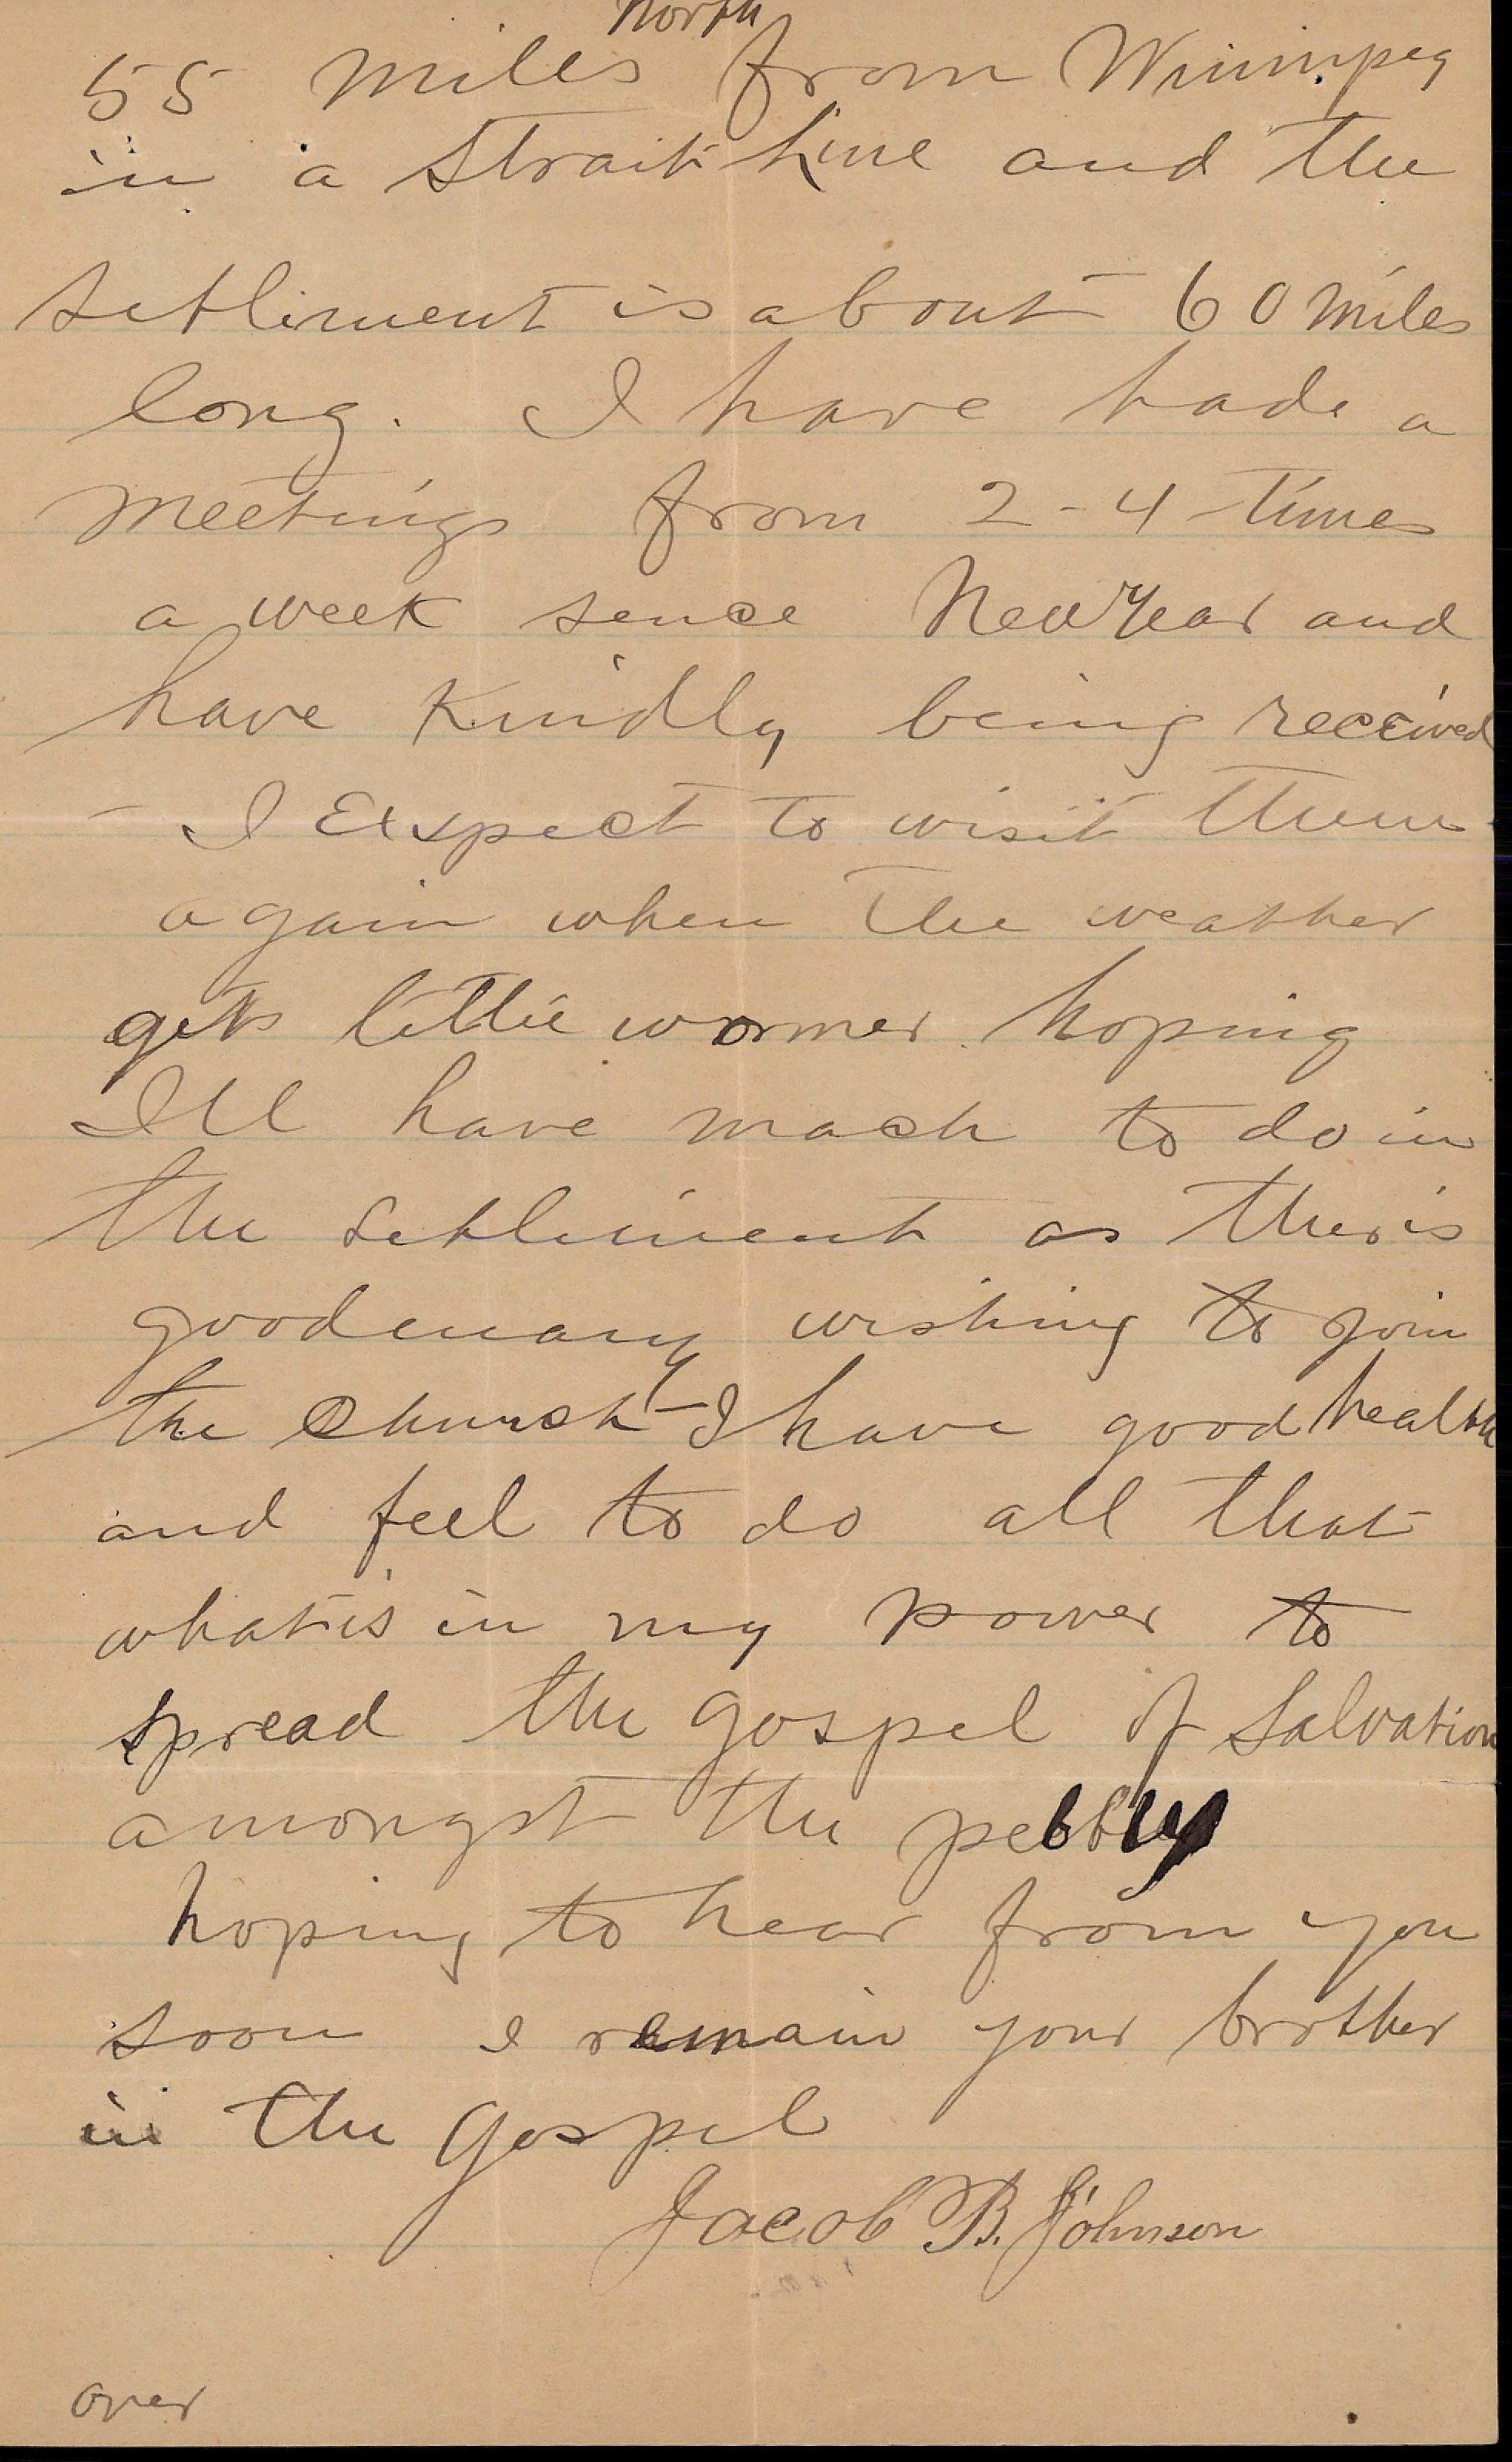 north
55 miles from Winnipeg
in a strait line and the
setliment is about 60 miles
long. I have hade a
meetings from 2-4 times
a week sence New Year and
have kindly being received
- I Exspect to wisit them
again when the weather
gets little wormer. hoping
Ill have mach to do in
the setliment as ther is
good many wishing to join
the church - I have good health
and feel to do all that
what is in my power to
spread the gospel of Salvation
amongst the
hoping to hear from you
soon I remain your brother
in the Gospel
Jacob B. Johnson
over